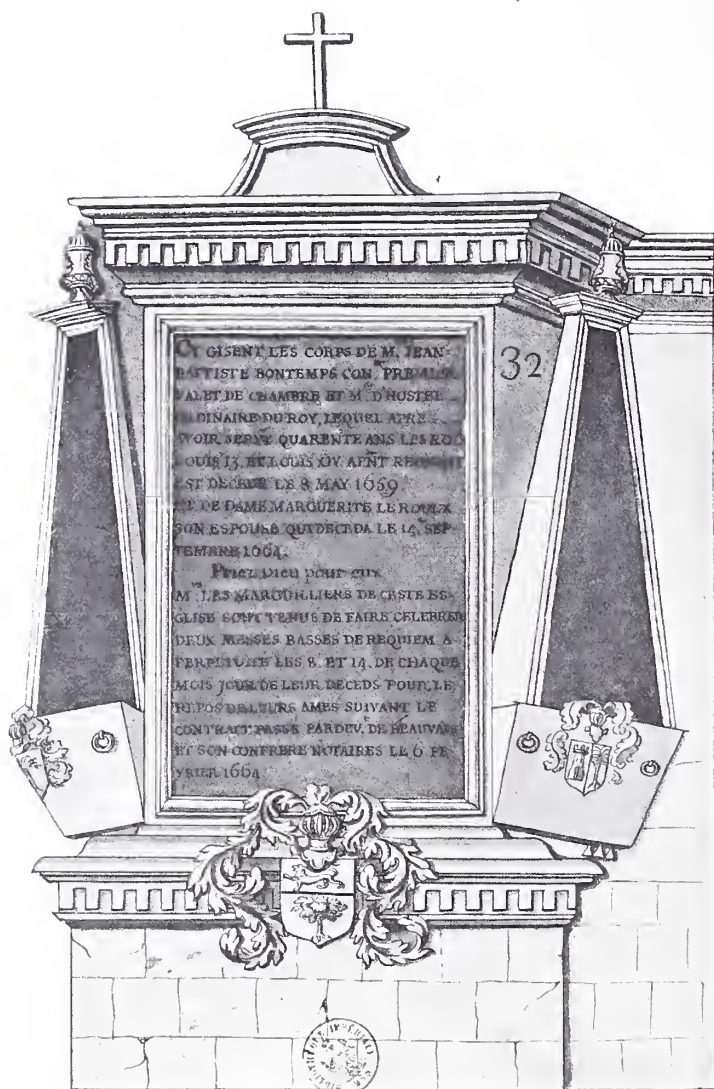 CY GISENT LES CORPS DE M. JEAN-
BAPTISTE BONTEMPS CON.er PREMIER
VALET DE CHAMBRE ET M.e D'HOSTEL
ORDINAIRE DU ROY, LEQUEL APRE
AVOIR SERVY QUARENTE ANS LES ROY
LOUIS 13. ET LOUIS XIV. APNT REGNANT
EST DECEDE LE 8 MAY 1659
ET DE DAME MARGUERITE LE ROULX
SON ESPOUSE QUI DECEDA LE 14. SEP-
TEMBRE 1664.
Priez Dieu pour eux
M.rs LES MARGUILLIERS DE CESTE ES-
GLISE SONT TENUS DE FAIRE CELEBRER
DEUX MESSES BASSES DE REQUIEM A
PERPETUITE LES 8. ET 14. DE CHAQUE
MOIS JOUR DE LEUR DECEDS POUR LE
REPOS DE LEURS AMES SUIVANT LE
CONTRACT PASSÉ PARDEV.t DE BEAUVAIS
ET SON CONFRERE NOTAIRES LE 6 FE
VRIER 1664
32